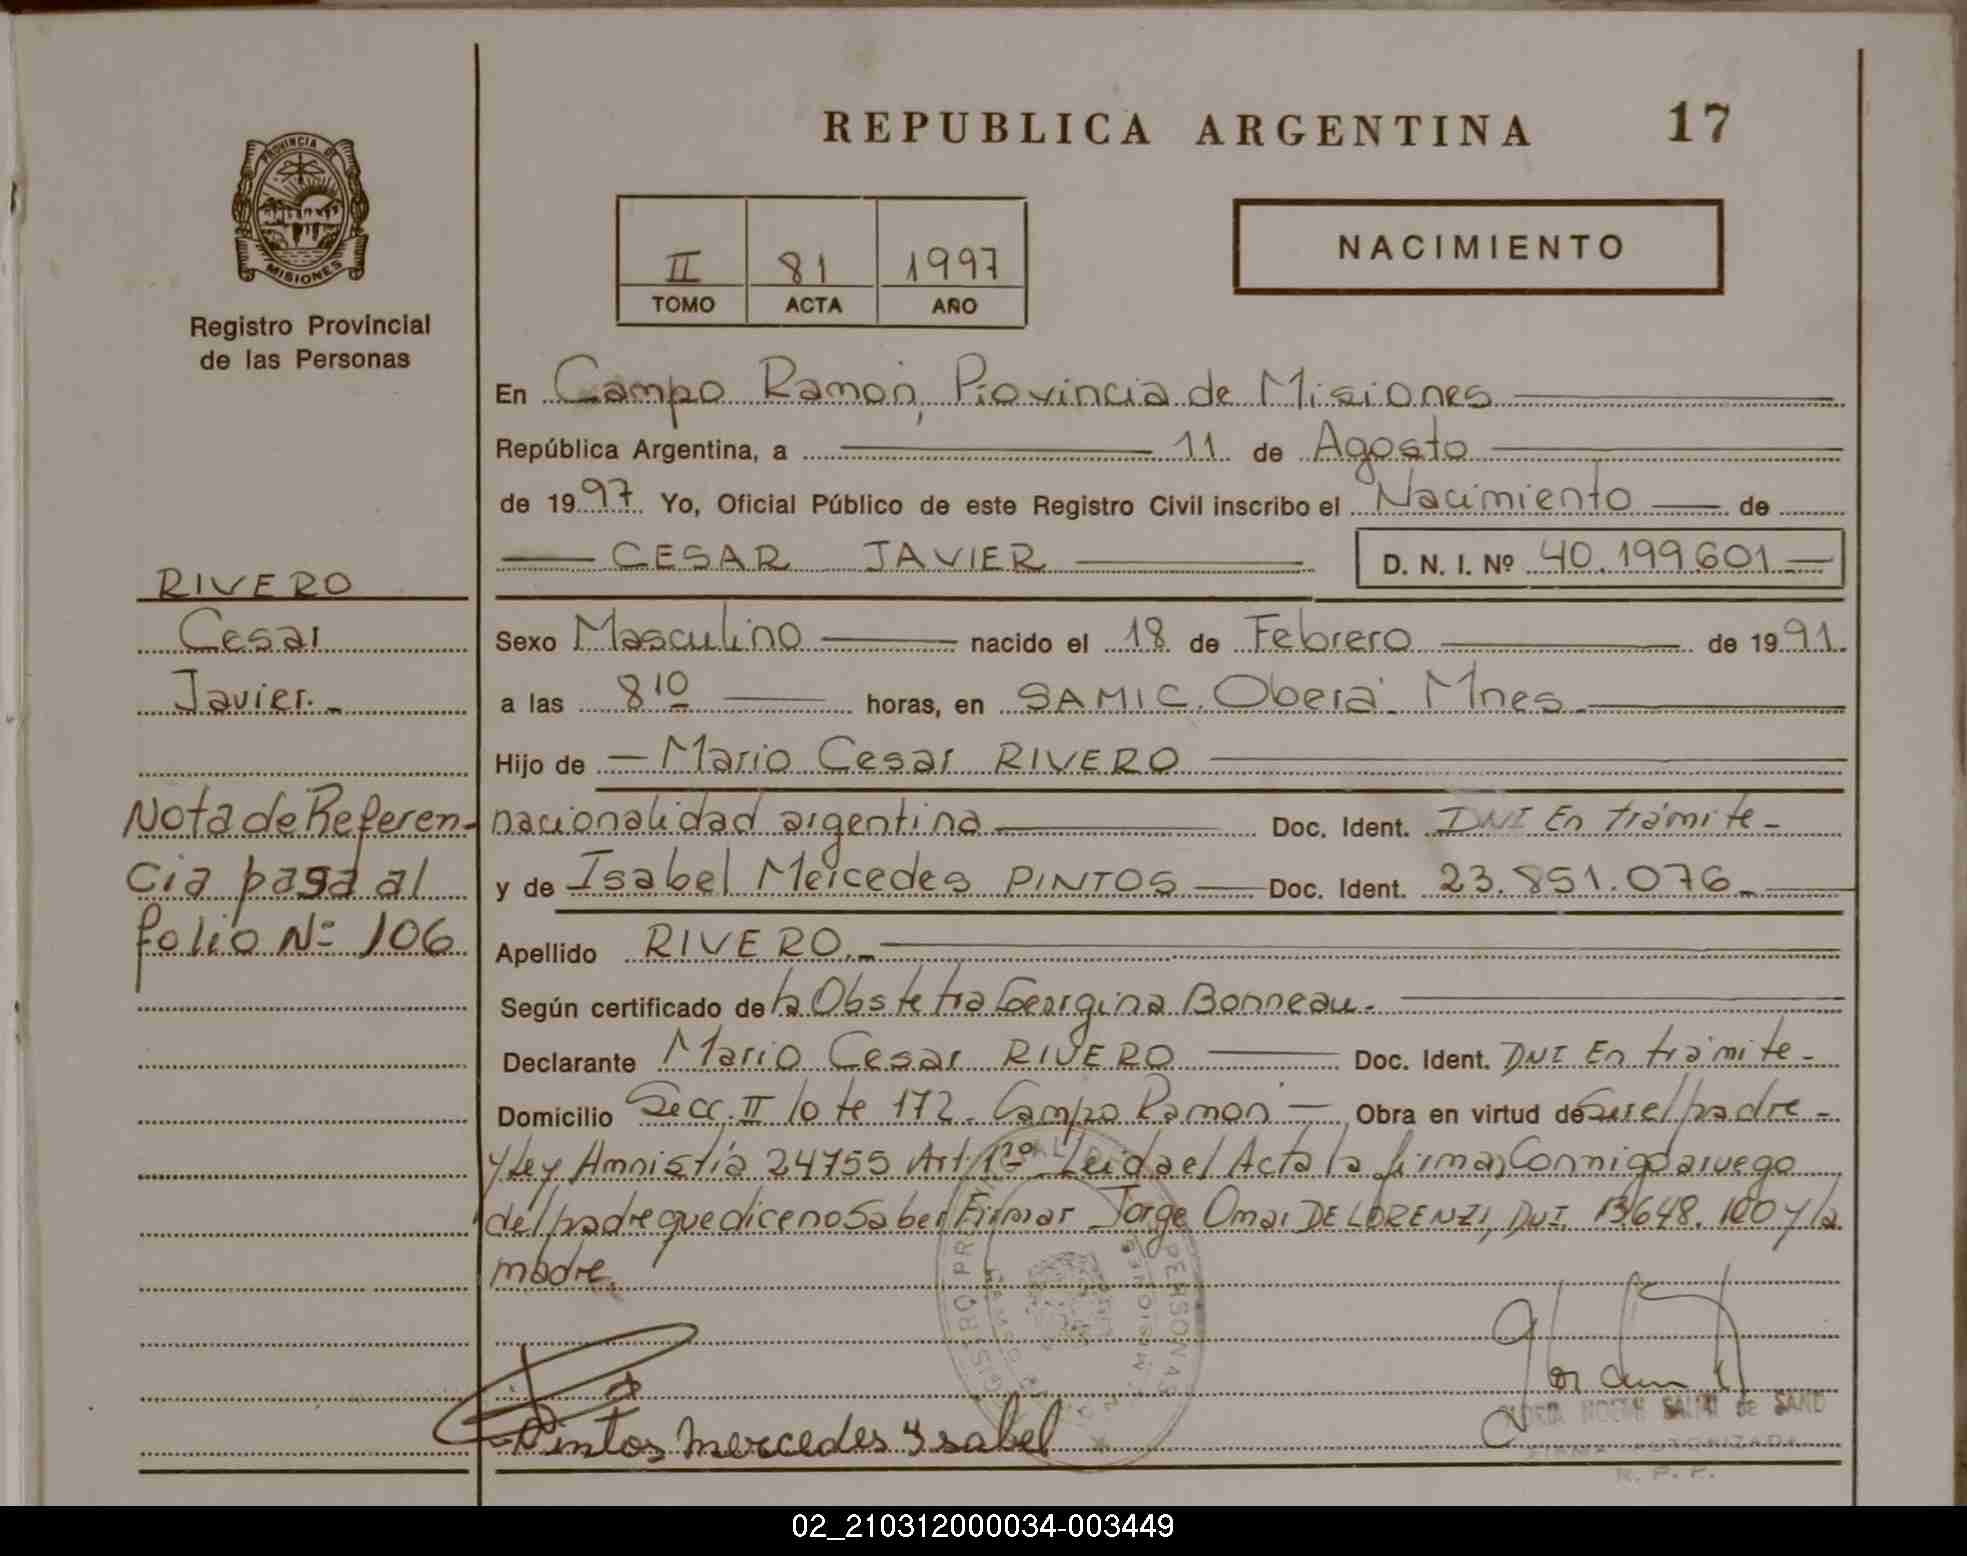 REPUBLICA ARGENTINA 17
PROVINCIA DE
MISIONES
Registro Provincial
de las Personas
II 81 1997
TOMO ACTA AÑO
NACIMIENTO
En Campo Ramón, Provincia de Misiones
República Argentina, a 11 de Agosto
de 1997 Yo, Oficial Público de este Registro Civil inscribo el Nacimiento de
CESAR JAVIER D. N. I. Nº 40.199.601
RIVERO
Cesar
Javier.-
Nota de Referen-
cia pasa al
folio Nº 106
Sexo Masculino nacido el 18 de Febrero de 1991.
a las 8 10 horas, en SAMIC. Oberá. Mnes.
Hijo de Mario Cesar RIVERO
nacionalidad argentina Doc. Ident. DNI En trámite-
y de Isabel Mercedes PINTOS Doc. Ident. 23.851.076.-
Apellido RIVERO.-
Según certificado de la Obstetra Georgina Bonneau.-
Declarante Mario Cesar RIVERO Doc. Ident. DNI En trámite-
Domicilio Secc. II lote 172- Campo Ramón Obra en virtud de Ser el padre-
y Ley Amnistía 24755 Art. 1º- Leida el Acta la firman Conmigo a ruego
del padre que dice no Saber Firmar Jorge Omar DE LORENZI, DNI. 13.648.100 y la
madre.
Pintos Mercedes Ysabel
FIRMA AUTORIZADA
R. P. P.
02_210312000034-003449